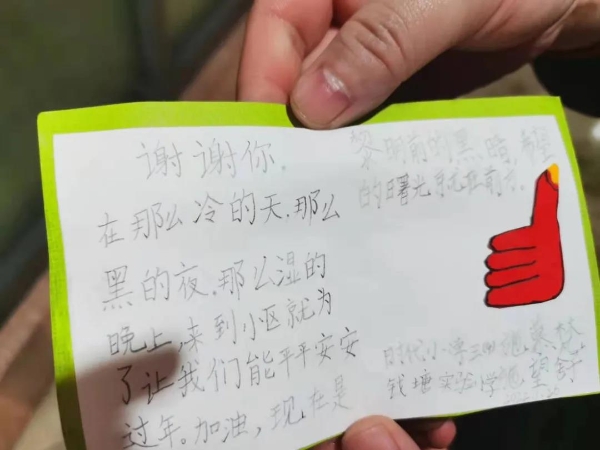 谢谢你.
在那么冷的天.那么
黑的夜.那么湿的
晚上,来到小区就为
了让我们能平平安安
过年。加油,现在是
黎明前的黑暗,希望
的曙光就在前方.
时代小学三
钱塘实验学 望舒